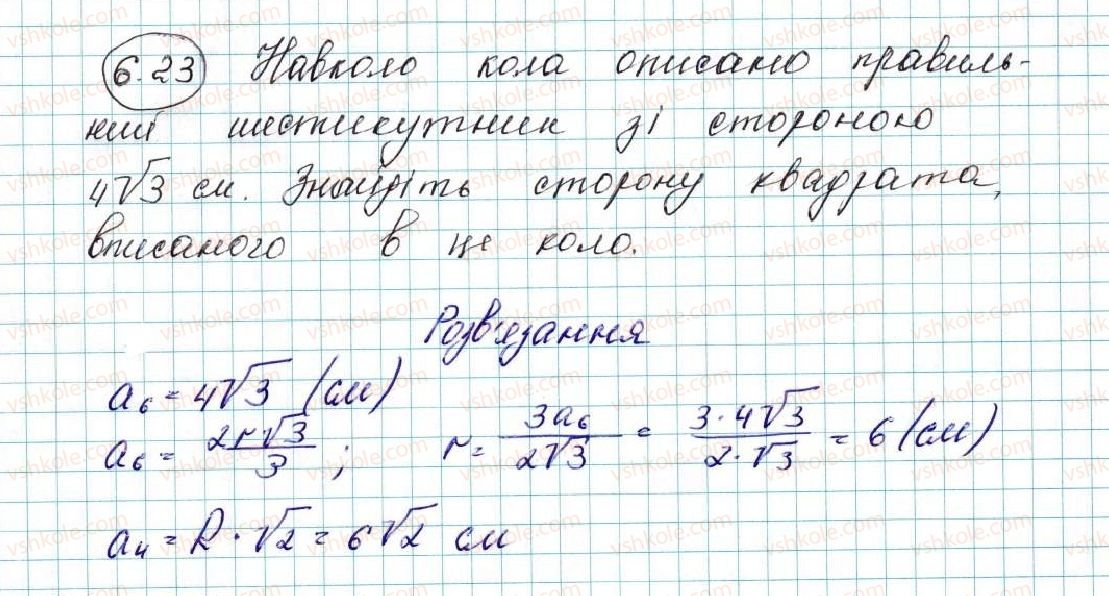 6.23 Навколо кола описано правиль-
ний шестикутник зі стороною
4√3 см. Знайдіть сторону квадрата,
вписаного в це коло.
Розв'язання
a₆ = 4√3 (см)
a₆ = 2r√3/3 ; r = 3a₆/2√3 = 3·4√3/2·√3 = 6 (см)
a₄ = R·√2 = 6√2 см